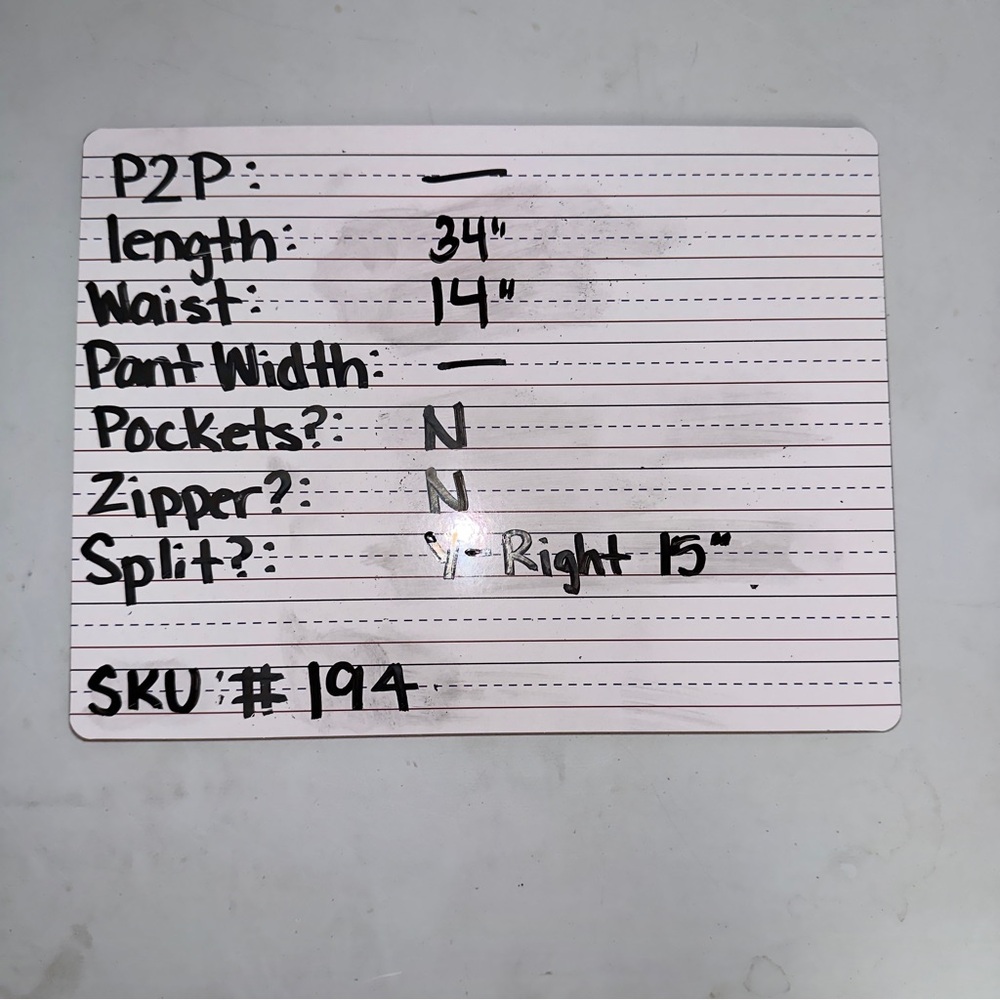 P2P: —
length: 34"
Waist: 14"
Pant Width: —
Pockets?: N
Zipper?: N
Split?: Y- Right 15"
SKU:# 194